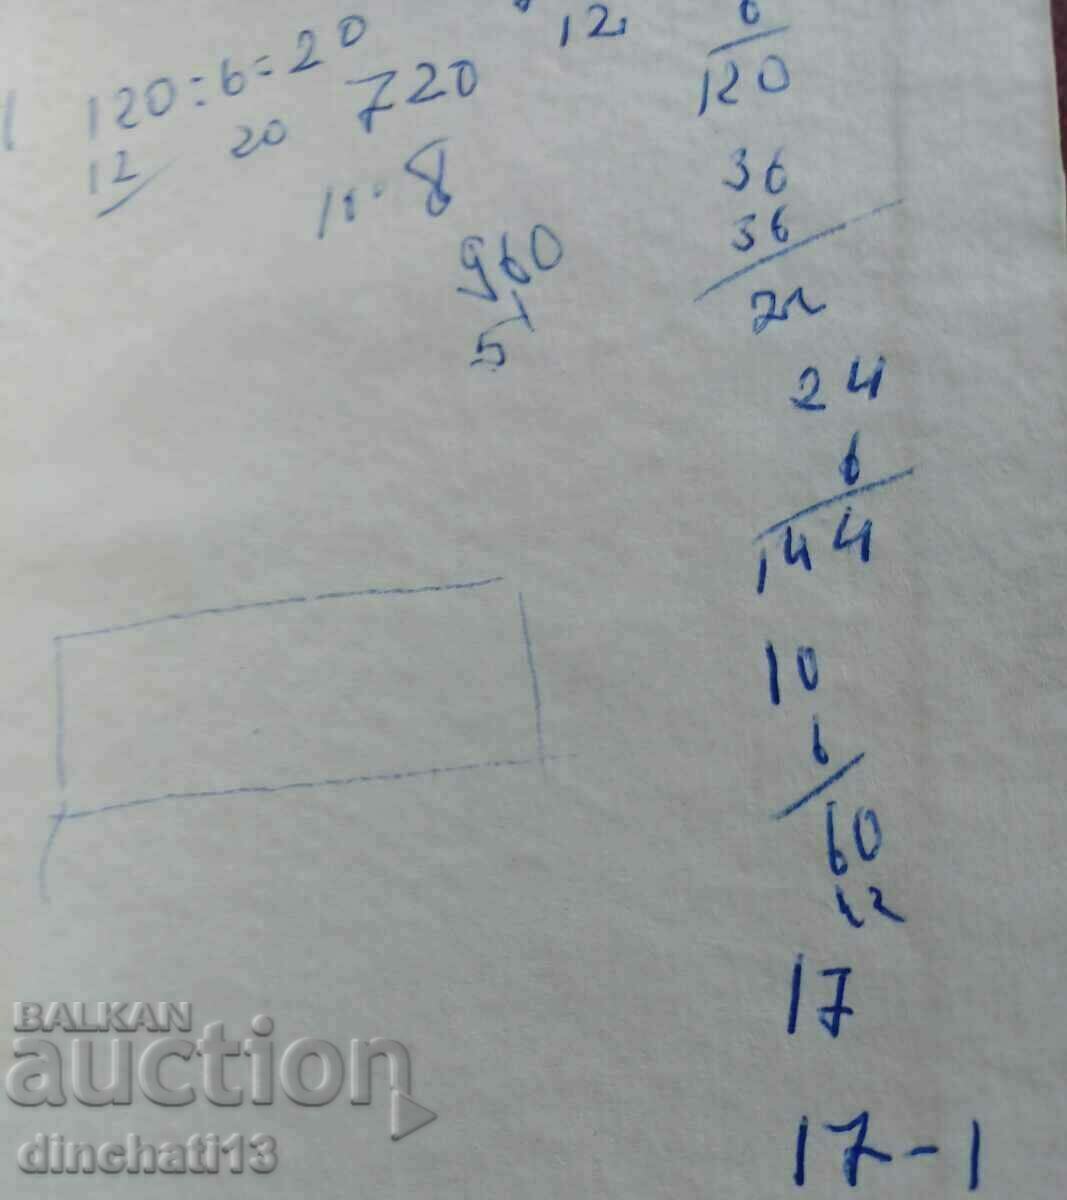 120:6=20
12
20
720
8
960
5
12
6
120
36
36
72
24
6
144
10
6
60
12
17
17-1
BALKAN
auction
dinchati13